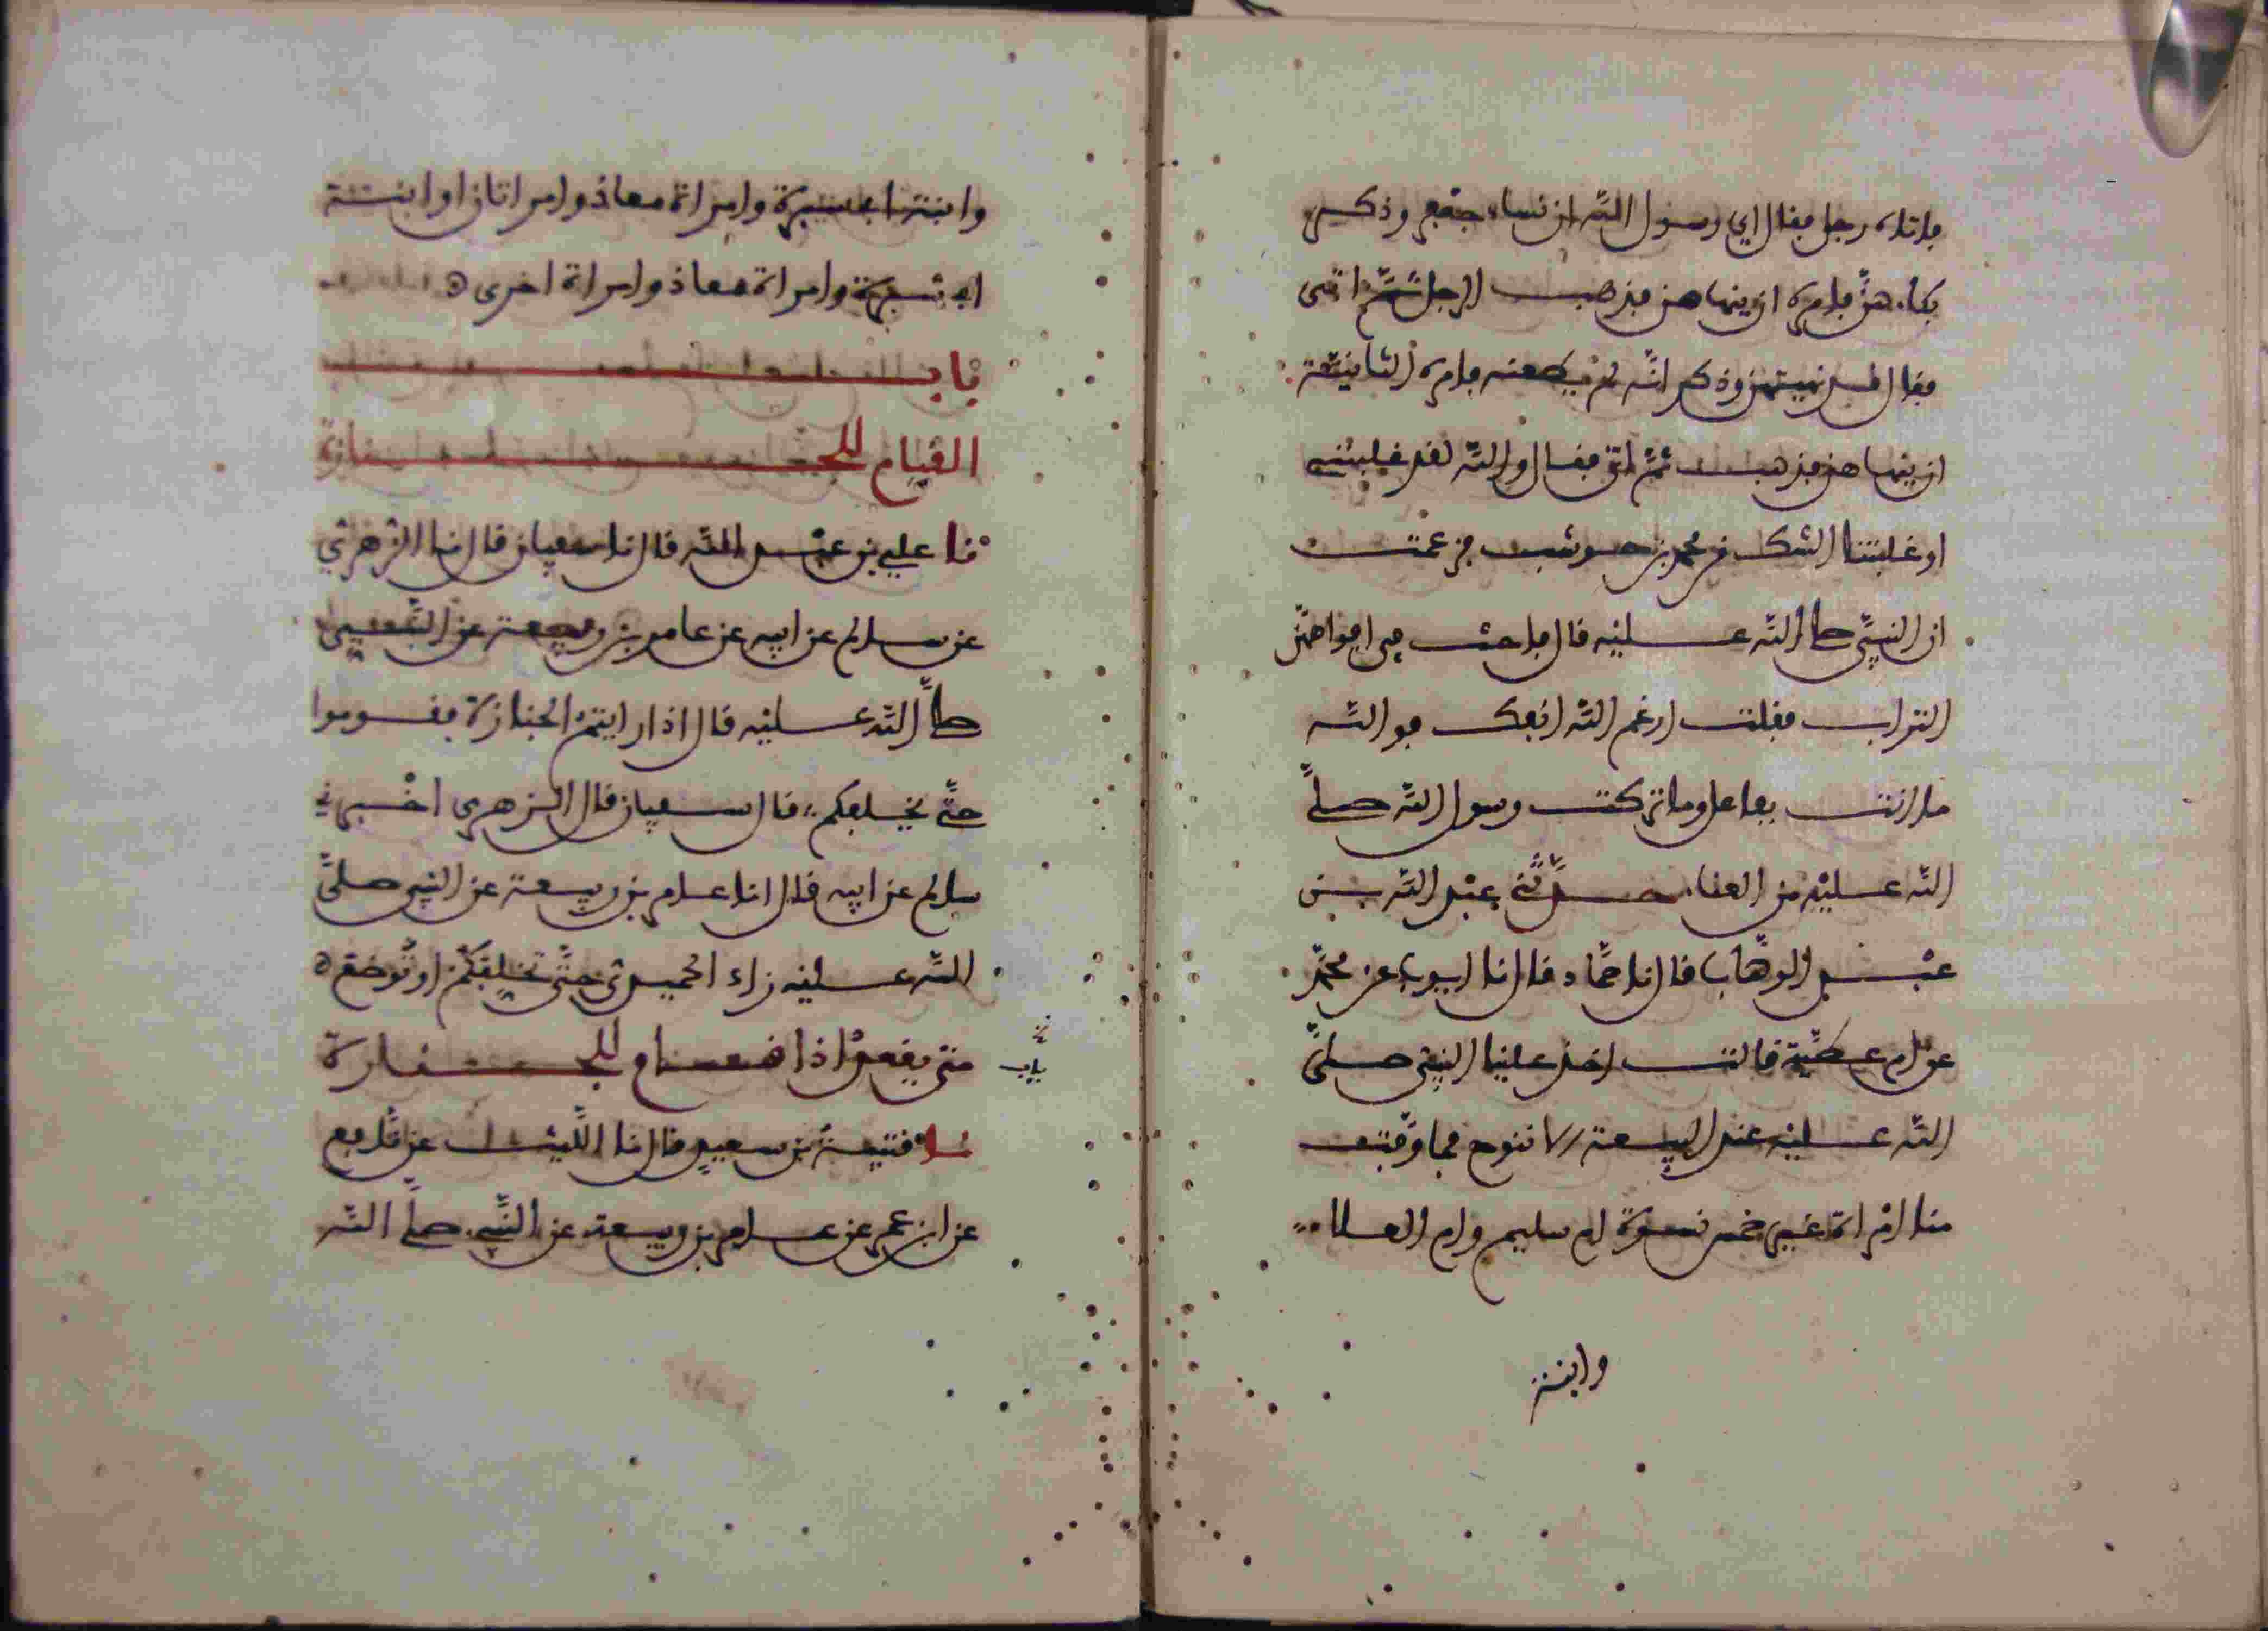 فاتاه رجل فقال اي رسول الله ان نساء جعفر وذكر
بكاءهن فامره ان ينهاهن فذهب الرجل ثم اتى
فقال قد نهيتهن وذكر انه لم يطعنه فامره الثانية
ان ينهاهن فذهب ثم اتى فقال والله لقد غلبنني
او غلبننا الشك من محمد بن حوشب فزعمت
ان النبي صلى الله عليه قال فاحث في افواههن
التراب فقلت ارغم الله انفك فوالله
ما انت بفاعل وما تركت رسول الله صلى
الله عليه من العناء حدثني عبد الله بن
عبد الوهاب قال نا حماد قال نا ايوب عن محمد
عن ام عطية قالت اخذ علينا النبي صلى
الله عليه عند البيعة الا ننوح فما وفت
منا امراة غير خمس نسوة ام سليم وام العلاء
وابنة
وابنة ابي سبرة وامراة معاذ وامراتان او ابنة
ابي سبرة وامراة معاذ وامراة اخرى
باب
القيام للجنازة
نا علي بن عبد الله قال نا سفيان قال نا الزهري
عن سالم عن ابيه عن عامر بن ربيعة عن النبي
صلى الله عليه قال اذا رايتم الجنازة فقوموا
حتى تخلفكم قال سفيان قال الزهري اخبرني
سالم عن ابيه قال انا عامر بن ربيعة عن النبي صلى
الله عليه زاد الحميدي حتى تخلفكم او توضع
باب
متى يقعد اذا قام للجنازة
نا قتيبة بن سعيد قال نا الليث عن نافع
عن ابن عمر عن عامر بن ربيعة عن النبي صلى الله